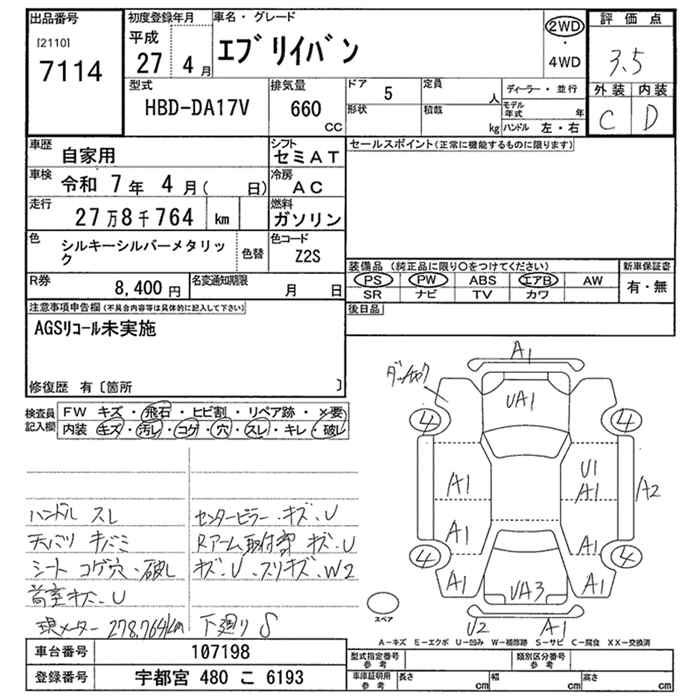 出品番号
[2110]
7114
初度登録年月
平成
27 4月
車名・グレード
エブリイバン
2WD
・
4WD
評価点
3.5
外装 内装
C D
型式
HBD-DA17V
排気量
660
CC
ドア 5
形状
定員 人
積載 kg
ディーラー・並行
モデル年式 年
ハンドル 左・右
車歴 自家用
シフト セミAT
車検 令和 7年 4月( 日)
冷房 AC
走行 27万8千764 km
燃料 ガソリン
色 シルキーシルバーメタリック
色替
色コード Z2S
R券 8,400円
名変通知期限 月 日
セールスポイント(正常に機能するものに限ります)
装備品 (純正品に限り○をつけてください)
PS PW ABS エアB AW
SR ナビ TV カワ
新車保証書
有・無
後日品
注意事項申告欄(不具合内容等は具体的に記入して下さい)
AGSリコール未実施
修復歴 有〔箇所 〕
検査員記入欄
FW キズ・飛石・ヒビ割・リペア跡・×要
内装 キズ・汚レ・コゲ・穴・スレ・キレ・破レ
ハンドル スレ
天バリ キバミ
シート コゲ穴・破レ
荷室キズ、U
現メーター 278,764km
センターピラー キズ、U
Rアーム取付部 キズ、U
キズ、U、スリキズ、W2
下廻り S
A1
UA1
4
4
A1
U1
A1
A2
A1
A1
4
4
A1
A1
UA3
U2
A1
スペア
A-キズ E-エクボ U-凹み W-補修跡 S-サビ C-腐食 XX-交換済
車台番号 107198
登録番号 宇都宮 480 こ 6193
型式指定番号 参考
類別区分番号 参考
車庫証明用 参考
長さ cm
幅 cm
高さ cm